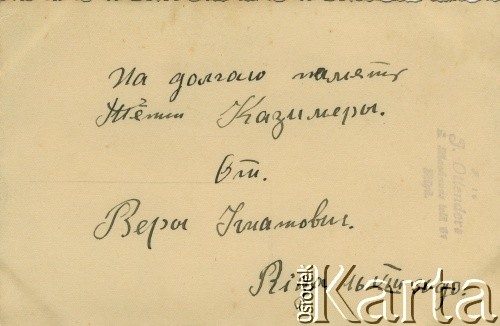 На долгаю память
тёти Казимеры.
От.
Веры Игнатович.
Rīga
Ośrodek
Karta